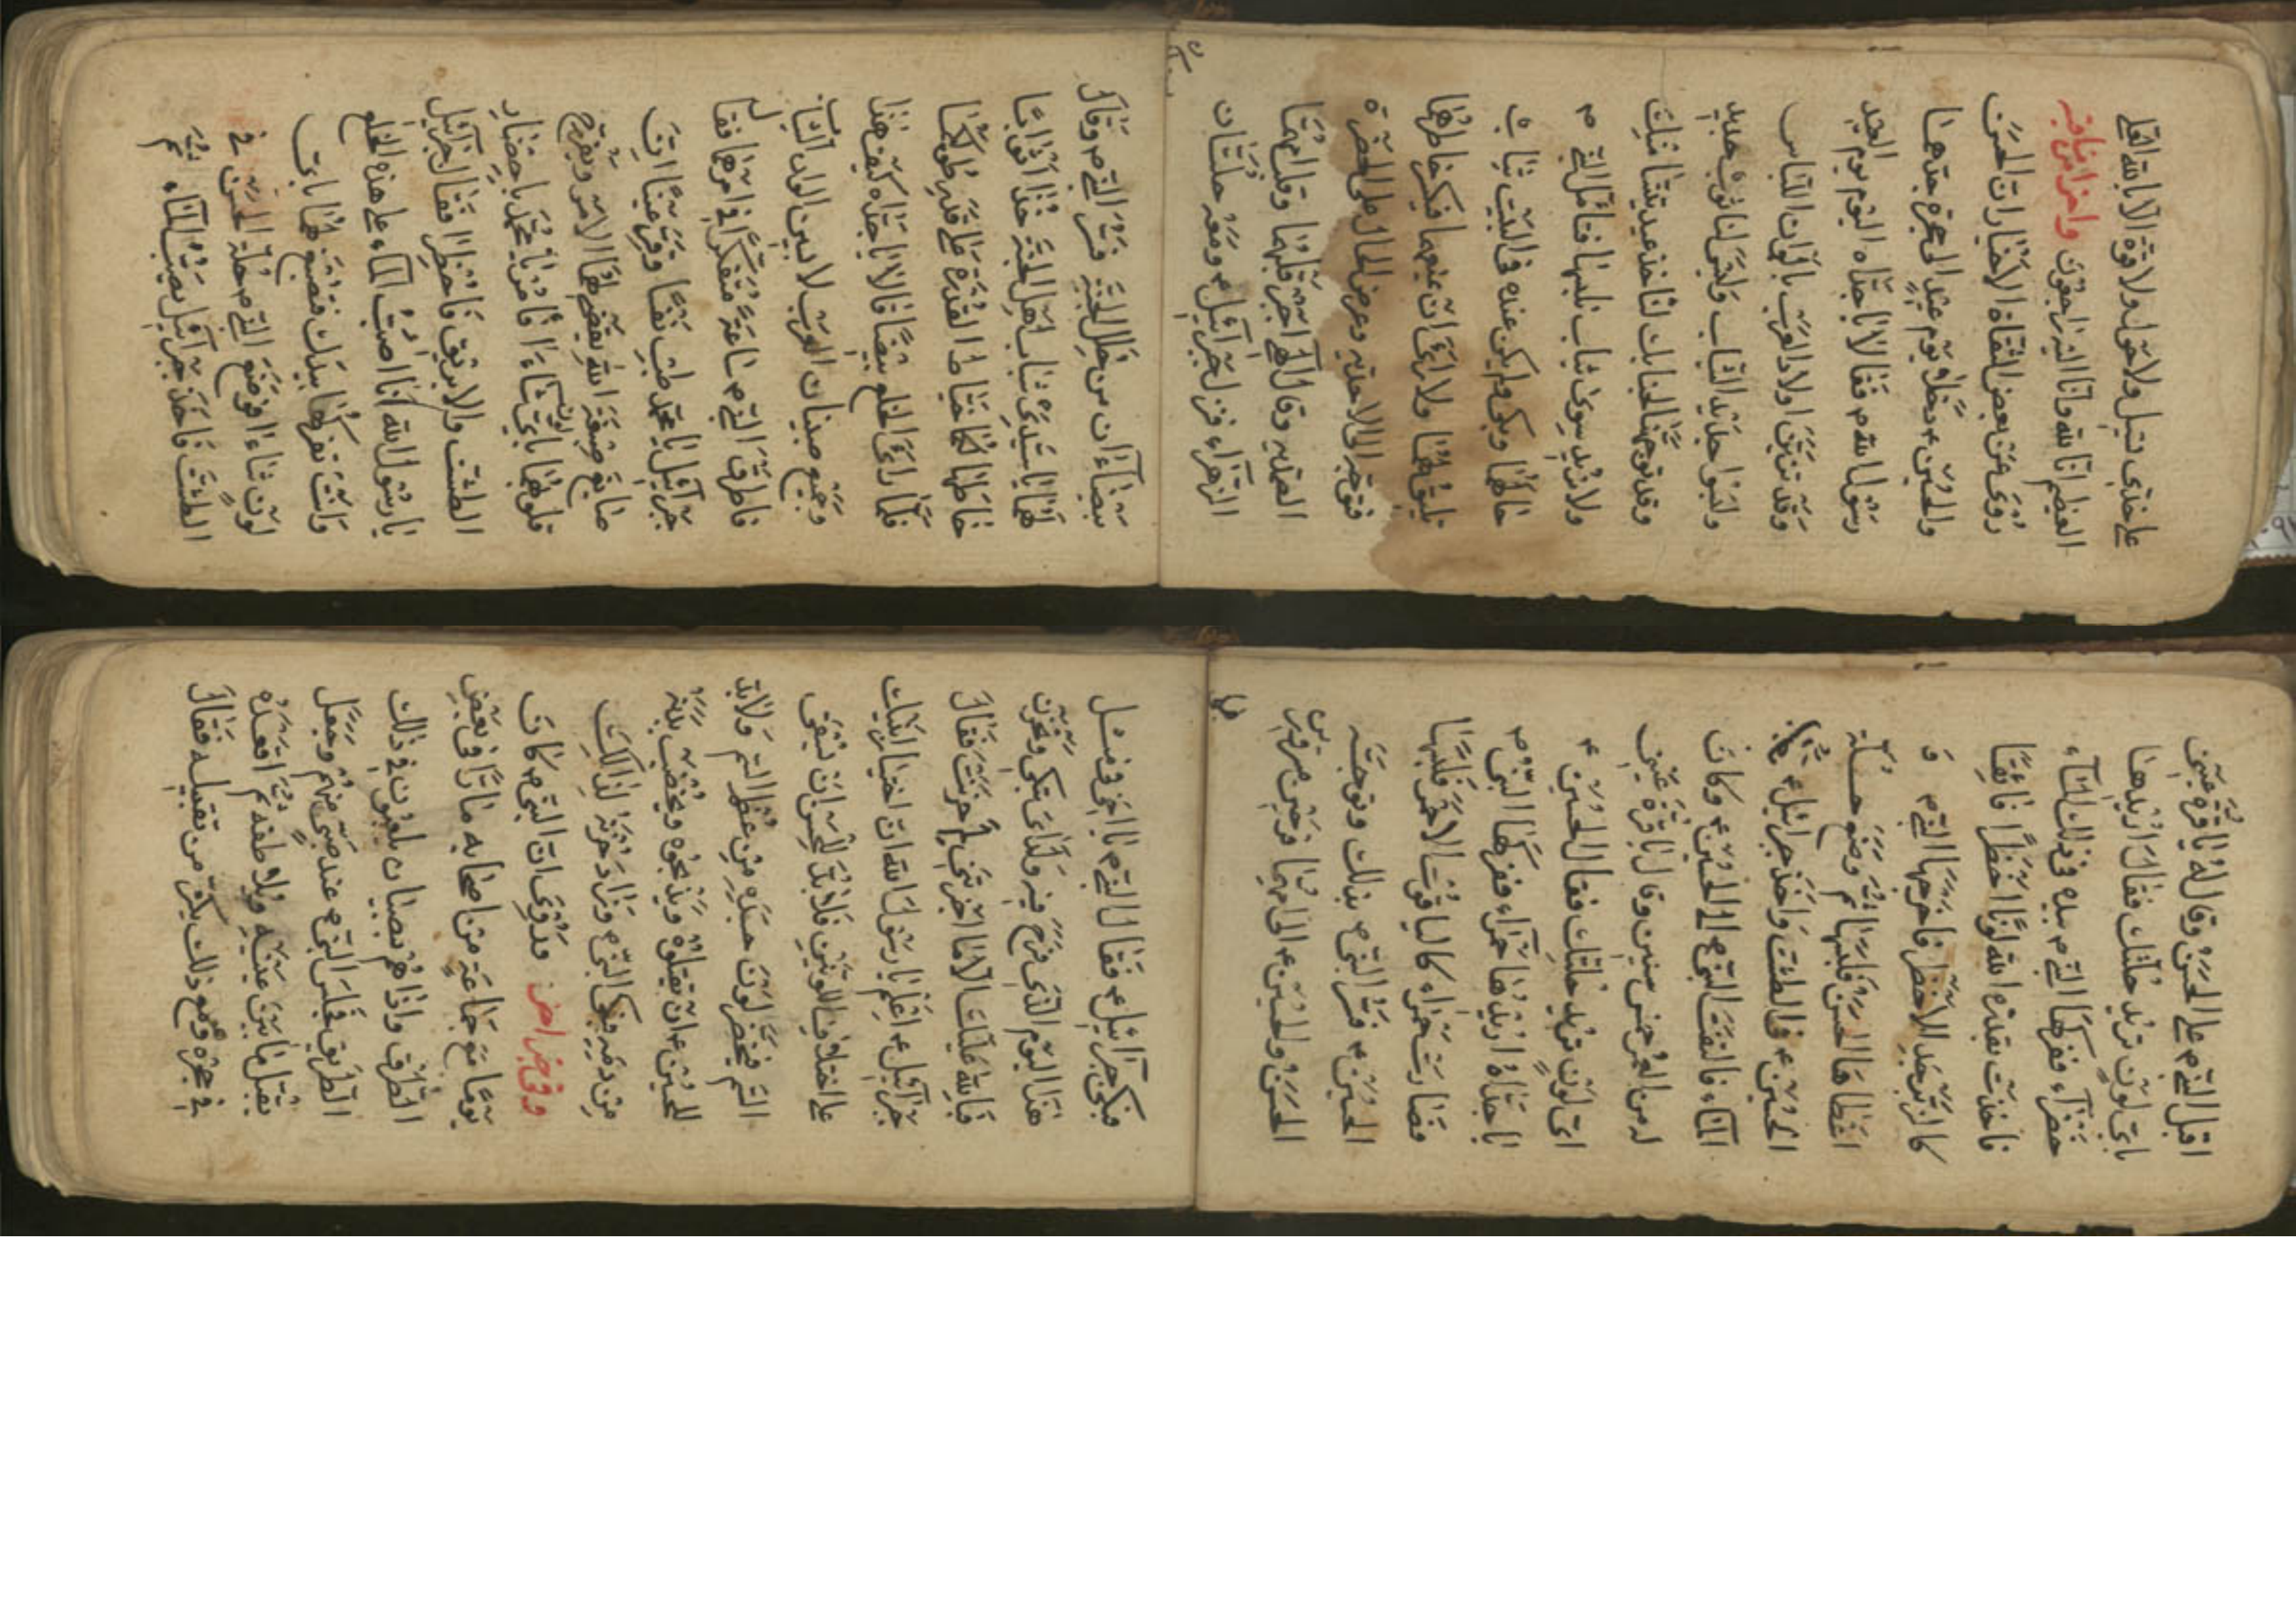 على خدّى تسيل ولا حول ولا قوة الا بالله العلى
العظيم انا لله وانا اليه راجعون واخر من مناقبه
روى عن بعض الثقاة الاخيار ان الحسن
والحسين ع دخلا يوم عيد الى حجرة جدهما
رسول الله ص فقالا يا جداه اليوم يوم العيد
وقد تزين اولاد العرب بالوان اللباس
ولبسوا جديد الثياب وليس لنا ثوب جديد
وقد توجهنا لجنابك لنأخذ عيديتنا منك
ولا نريد سوى ثياب نلبسها فتأمل النبى ص
حالهما وبكى ولم يكن عنده فى البيت ثياب
تليق بهما ولا رأى ان يمنعهما فيكسر خاطرهما
فتوجه الى الاحدية وعرض الحال على الحضرة
الصمدية وقال الهى اجبر قلبهما وقلب امهما
الزهراء فنزل جبرائيل ع ومعه حلتان
بيضاوان من حلل الجنة فسر النبى ص وقال
لهما يا سيدى شباب اهل الجنة خذا اثوابا
خاطها لكما خياط القدرة على قدر طولكما
فلما رأى الخلع بيضا قالا يا جداه كيف هذا
وجميع صبيان العرب لابسين الوان الثياب
فاطرق النبى ص ساعة متفكرا فى امرهما فقال
جبرائيل يا محمد طب نفسا وقر عينا ان
صابغ صبغة الله يقضى لهما الامر ويفرح
قلوبهما باى لون شاءا فأمر يا محمد باحضار
الطشت والابريق فاحضرا فقال جبرائيل
يا رسول الله انا اصب الماء على هذه الخلع
وانت تفركهما بيدك فتصبغ لهما باى
لون شاءا فوضع النبى ص حلة الحسن فى
الطشت فاخذ جبرائيل يصب الماء ثم
اقبل النبى ص على الحسن وقال له يا قرة عينى
باى لون تريد حلتك فقال اريدها
خضراء ففركها النبى ص بيده فى ذلك الماء
فاخذت بقدرة الله لونا اخضرا فائقا
كالزبرجد الاخضر فاخرجها النبى ص و
اعطاها الحسن فلبسها ثم وضع حلة
الحسين ع فى الطشت واخذ جبرائيل ع يصب
الماء فالتفت النبى ص الى الحسين ع وكان
له من العمر خمس سنين وقال يا قرة عينى
اى لون تريد حلتك فقال الحسين ع
يا جداه اريدها حمراء ففركها النبى ص
فصارت حمراء كالياقوت الاحمر فلبسها
الحسين ع فسر النبى ص بذلك وتوجه
الحسن والحسين ع الى امهما فرحين مسرورين
فبكى جبرائيل ع فقال النبى ص يا اخى فى مثل
هذا اليوم الذى فرح فيه ولداى تبكى وتحزن
فبالله عليك الا ما اخبرتنى لم حزنت فقال
جبرائيل ع اعلم يا رسول الله ان اختيار ابنيك
على اختلاف اللونين فلا بد للحسن ان يسقى
السم فيخضر لون جسده من عظم السم ولا بد
للحسين ع ان يقتلوه ويذبحوه ويخضب بدنه
من دمه فبكى النبى ص وزاد حزنه لذلك
وفى خبر اخر قد روى ان النبى ص كان
يوما مع جماعة من اصحابه مارا فى بعض
الطرق واذا هم بصبيان يلعبون فى ذلك
الطريق فجلس النبى ص عند صبى منهم وجعل
يقبل ما بين عينيه ويلاطفه ثم اقعده
فى حجره وهو مع ذلك يكثر من تقبيله فقال